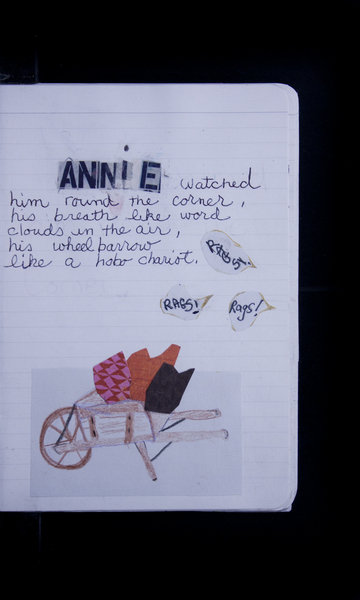 ANNiE watched
him round the corner,
his breath like word
clouds in the air,
his wheelbarrow
like a hobo chariot.
RAGS!
RAGS!
Rags!